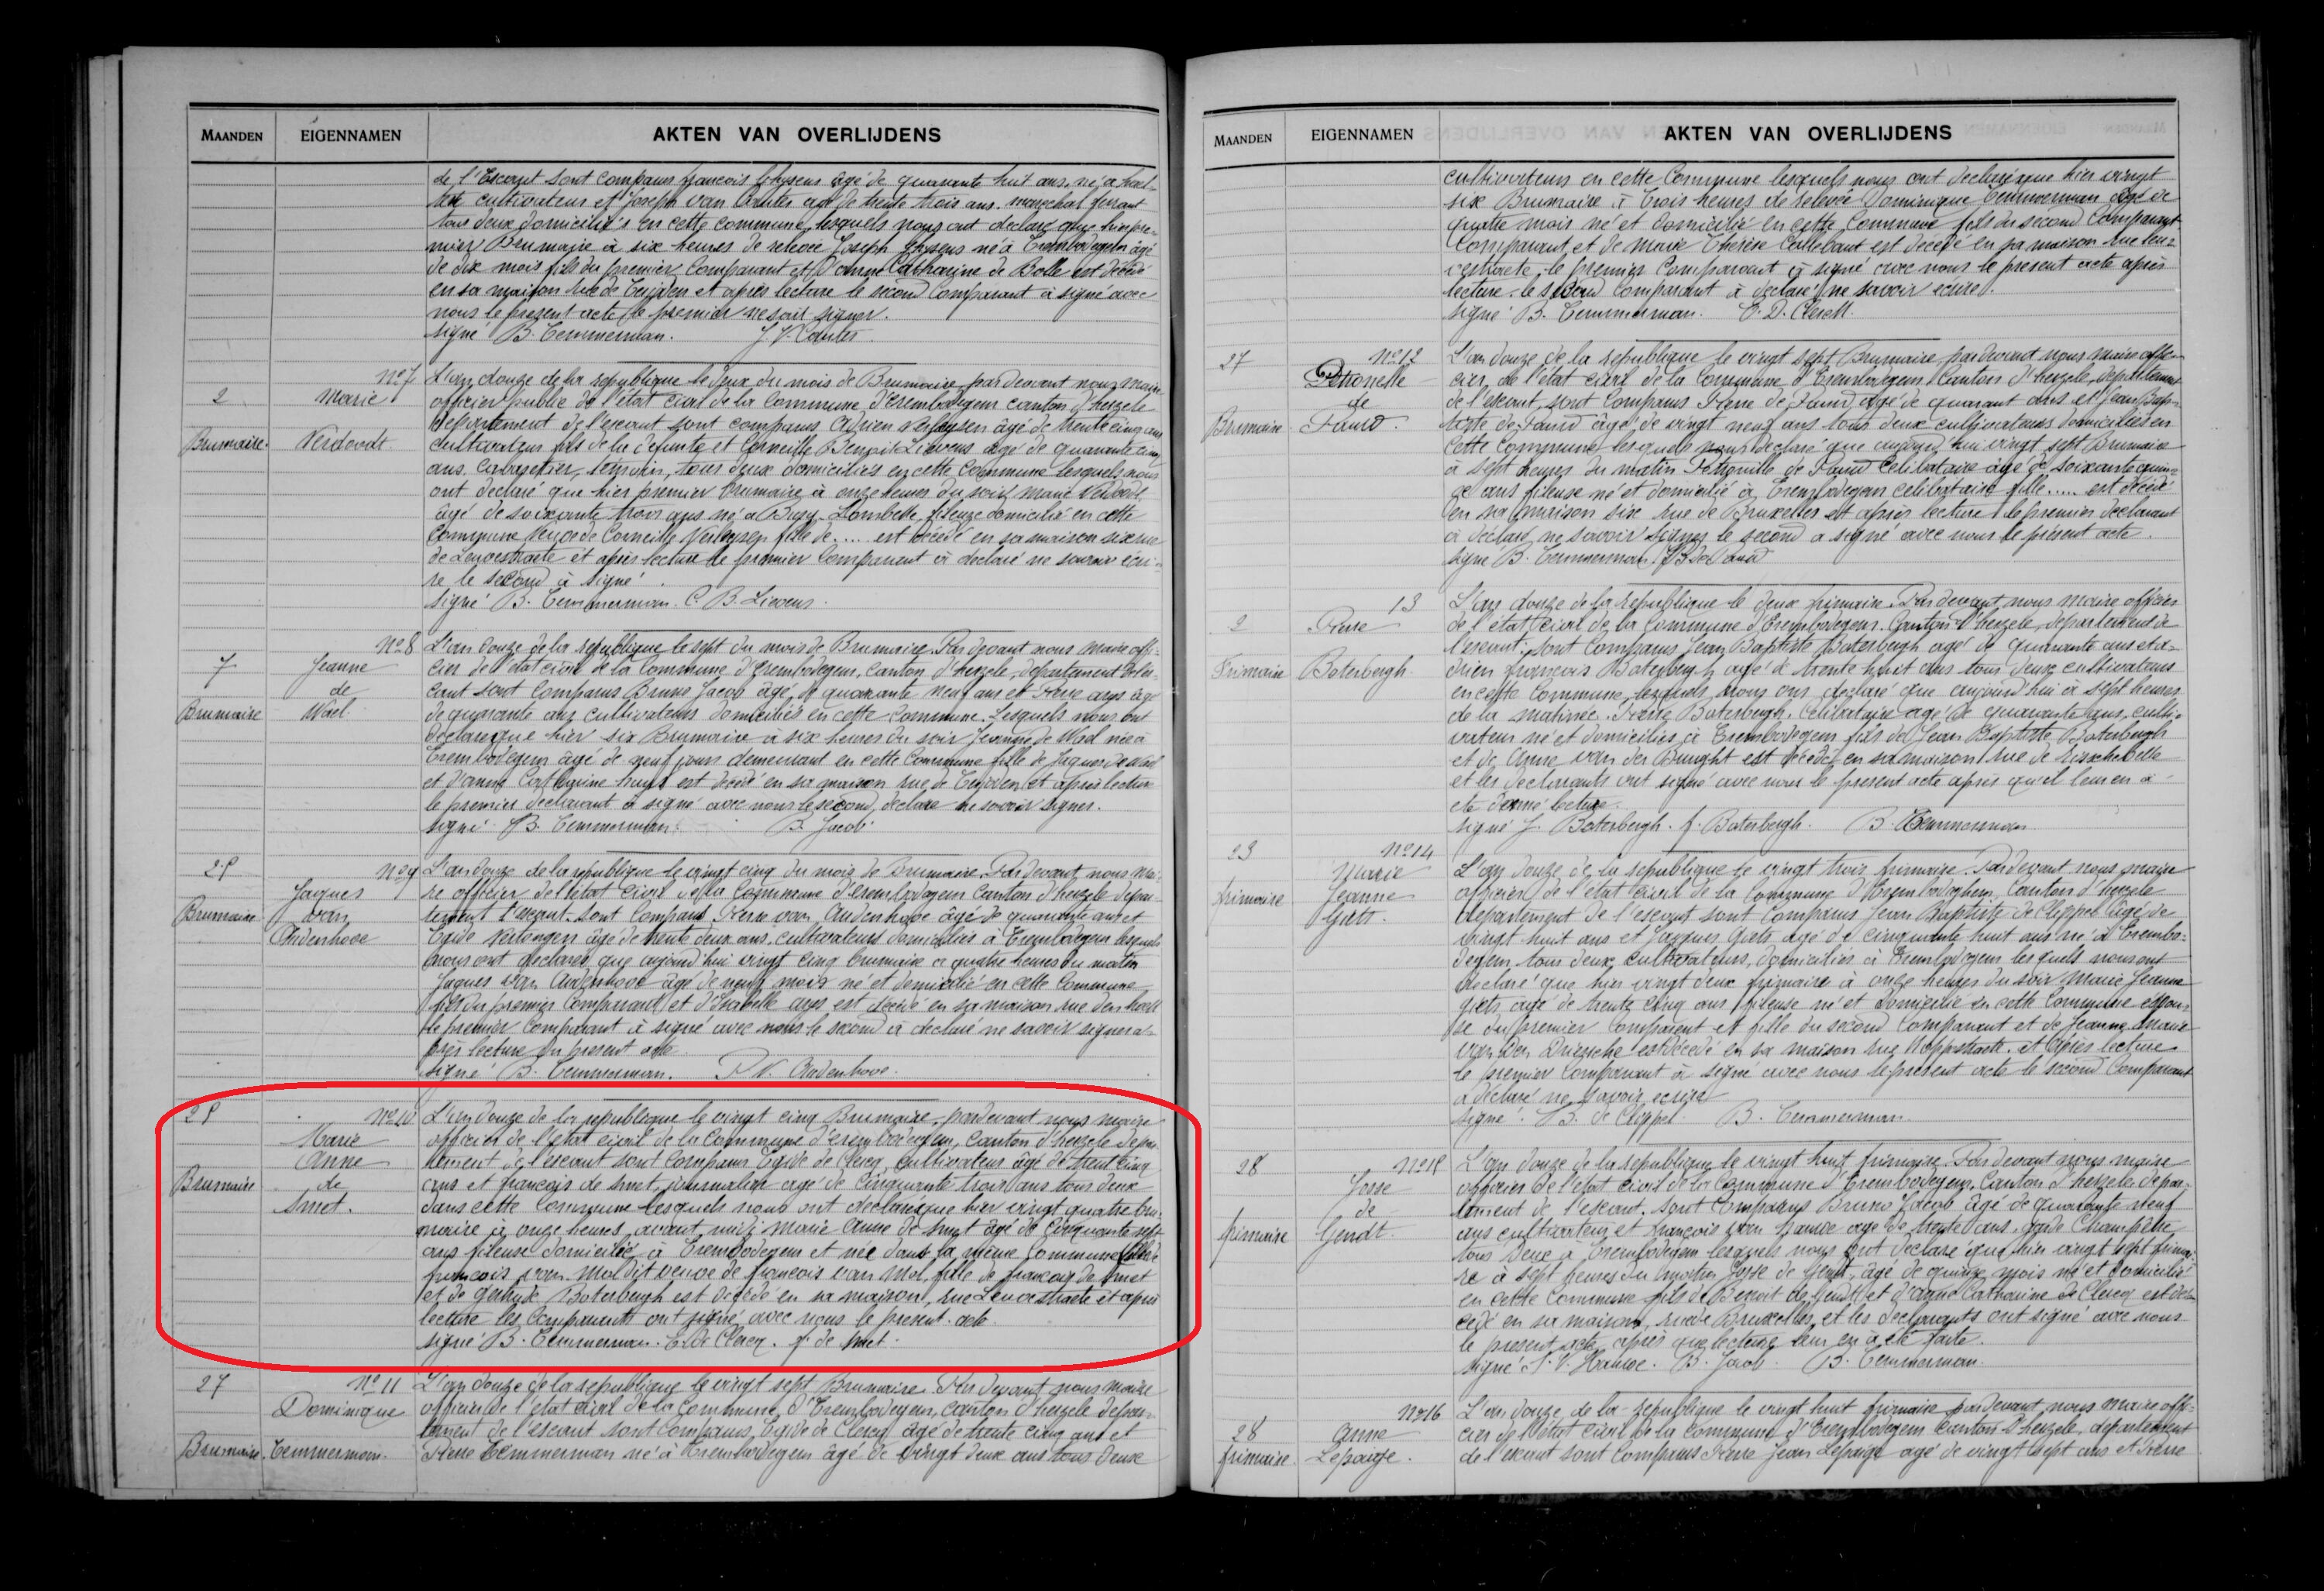 MAANDEN EIGENNAMEN AKTEN VAN OVERLIJDENS
de l'Escaut sont comparus francois Ghysens âgé de quarante huit ans, né a hael-
tert cultivateur et Joseph van Coulter agé de trente trois ans marechal ferrant
tous deux domiciliés en cette commune, lesquels nous ont declaré que hier pre-
mier Brumaire à six heures de relevée Joseph Ghysens né à Erembodegem âgé
de dix mois fils du premier Comparant et d'anne Catharine de Bolle est décédé
en sa maison rue de Terjoden et après lecture le second Comparant à signé avec
nous le present acte le premier ne sait signer.
signé B. Temmerman. J. V. Coulter.
2 Brumaire.
No 7 Marie Verdoodt
L'an douze de la republique le deux du mois de Brumaire, par devant nous maire
officier public de l'état civil de la Commune d'erembodegem canton d'herzele
departement de l'escaut sont comparus Adrien Verheysen âgé de trente cinq ans
cultivateur fils de la defunte et Corneille Benoit Lievens âgé de quarante cinq
ans, Cabaretier, témoin, tous deux domiciliés en cette Commune lesquels nous
ont declaré que hier premier brumaire à onze heures du soir Marie Verdoodt
âgé de soixante trois ans né a Burg-Lombeke, fileuze domicilié en cette
Commune Veuve de Corneille Verheysen fille de ..... est décédé en sa maison sixe rue
de Leuvestraete et après lecture le premier Comparant à declaré ne savoir écri-
re le second à signé
signé B. Temmerman. C. B. Lievens.
7 Brumaire
No 8 Jeanne de Wael
L'an douze de la republique le sept du mois de Brumaire. Par devant nous maire offi-
cier de l'état civil de la Commune d'Erembodegem, canton d'herzele, departement de l'es-
caut sont comparus Bruno Jacob âgé de quarante neuf ans et Pierre arys âgé
de quarante ans cultivateurs domiciliés en cette commune. Lesquels nous ont
declaré que hier six Brumaire à six heures du soir Jeanne de Wael née à
Erembodegem âgé de neuf jours demeurant en cette Commune fille de Jaques de Wael
et d'anne Catharine huyst est décédé en sa maison rue de Terjoden et après lecture
le premier declarant à signé avec nous le second declare ne savoir signer.
signé B. Temmerman. B. Jacob
25 Brumaire
No 9 Jaques van Audenhove
L'an douze de la republique le vingt cinq du mois de Brumaire. Par devant nous mai-
re officier de l'état civil de la Commune d'erembodegem canton d'herzele depar-
tement l'escaut. sont Comparus Pierre van Audenhove âgé de quarante ans et
Egide Vertongen âgé de trente deux ans. cultivateurs domiciliés à Erembodegem lesquels
nous ont declaré que aujourd'hui vingt cinq brumaire a quatre heures du matin
Jaques van Audenhove âgé de neuf mois né et domicilié en cette Commune
fils du premier Comparant et d'Isabelle arys est décédé en sa maison rue den hoek
Le premier Comparant à signé avec nous le second à declaré ne savoir signer a-
près lecture du present acte
signé B. Temmerman. P. V. Audenhove.
25 Brumaire
No 10 Marie Anne de Smet.
L'an douze de la republique le vingt cinq Brumaire, par devant nous maire
officier de l'état civil de la Commune d'erembodegem, Canton d'herzele depar-
tement de l'escaut sont Comparus Egide de Clercq cultivateur âgé de trent cinq
ans et francois de Smet journalier agé de cinquante trois ans tous deux
dans cette Commune lesquels nous ont declaré que hier vingt quatre bru-
maire à onze heures avant midi Marie Anne de Smet âgé de Cinquante sept
ans fileuse domicilié à Erembodegem et née dans la même Commune
francois van Mol dit veuve de francois van Mol, fille de francois de Smet
et de Gertrude Boterbergh est décédé en sa maison, rue Leuvestraete et après
lecture les Comparants ont signé avec nous le present acte.
signé B. Temmerman. E. de Clercq. f. de Smet.
27 Brumaire.
No 11 Dominique Temmerman.
L'an douze de la republique le vingt sept Brumaire. Par devant nous maire
officier de l'état civil de la Commune d'Erembodegem, canton d'herzele depar-
tement de l'escaut sont comparus Egide de Clercq âgé de trente cinq ans et
Pierre Temmerman né à Erembodegem âgé de vingt deux ans tous deux
MAANDEN EIGENNAMEN AKTEN VAN OVERLIJDENS
cultivateurs en cette Commune lesquels nous ont declaré que hier vingt
six Brumaire à trois heures de relevée Dominique Temmerman âgé de
quatre mois né et domicilié en cette Commune fils du second Comparant
Comparant et de Marie Therèse Callebaut est decédé en sa maison rue Leu-
vestraete, le premier Comparant à signé avec nous le present acte après
lecture. le second Comparant à declaré ne savoir ecrire.
signé B. Temmerman. E. D. Clerck.
27 Brumaire
No 12 Petronelle de Fauw.
L'an douze de la republique le vingt sept Brumaire, par devant nous maire offi-
cier de l'état civil de la Commune d'Erembodegem Canton d'herzele, departement
de l'escaut, sont Comparus Pierre de Fauw âgé de quarant ans et Jean Bap-
tiste de Fauw âgé de vingt neuf ans tous deux cultivateurs domiciliés en
Cette Commune lesquels nous declaré que aujourd'hui vingt sept Brumaire
à sept heures du matin Petronille de Fauw Celibataire âgé de soixante quin-
ze ans fileuse né et domicilié à Erembodegem celibataire fille ..... est décédé
en sa maison sixe rue de Bruxelles et après lecture le premier declarant
à déclaré ne savoir signer le second a signé avec nous le présent acte.
signé B. Temmerman J B de Fauw
2 Frimaire
13 Pierre Boterbergh.
L'an douze de la republique le deux frimaire. Par devant nous maire officier
de l'état civil de la Commune d'Erembodegem. Canton d'herzele, departement de
l'escaut, sont Comparus Jean Baptiste Boterbergh agé de quarante ans et a-
drien francois Boterbergh agé de trente huit ans tous deux cultivateurs
en cette Commune, lesquels nous ont declaré que aujourd'hui à sept heures
de la matinée. Pierre Boterbergh. Celibataire agé de quarante ans, culti-
vateur né et domiciliés à Erembodegem fils de Jean Baptiste Boterbergh
et de Anne van der Burght est décédé en sa maison rue de
et les declarants ont signé avec nous le present acte après qu'il leur en à
ete donné lecture.
signé J. Boterbergh. f. Boterbergh. B. Temmerman
23 frimaire
No 14 Marie Jeanne Giets.
L'an douze de la republique le vingt trois frimaire. Par devant nous maire
officier de l'état civil de la Commune d'Erembodeghem, Canton d'herzele
departement de l'escaut sont Comparus Jean Baptiste de Cleppel âgé de
vingt-huit ans et Jacques Giets agé de cinquante huit ans né à Erembo-
degem tous deux cultivateurs, domiciliés à Erembodegem lesquels nous ont
declaré que hier vingt deux frimaire à onze heures du soir Marie Jeanne
Giets agé de trente cinq ans fileuse né et domicilié en cette Commune épou-
se du premier Comparent et fille du second Comparant et de Jeanne Marie
van den Driesche est decédé en sa maison rue Koppstraete. et après lecture
le premier Comparant à signé avec nous le present acte le second Comparant
à declaré ne savoir ecrire
signé. B. de Cleppel B. Temmerman
28 frimaire
No 15 Josse de Gendt.
L'an douze de la republique le vingt huit frimaire. Par devant nous maire
officier de l'état civil de la Commune d'Erembodegem, Canton d'herzele depar-
tement de l'escaut, sont Comparus Bruno Jacob âgé de quarante neuf
ans cultivateur et francois van Hauwe age de trente ans, garde Champêtre
tous deux a Erembodegem lesquels nous ont déclaré que hier vingt sept frimai-
re à sept heures du matin Josse de Gendt, âgé de quinze mois né et domicilié
en cette Commune fils de Benoit de Gendt et d'anne Catharine de Clercq est dé-
cédé en sa maison, rue de Bruxelles, et les declarants ont signé avec nous
le present acte après que lecture leur en à été faite.
signé f. V. Hauwe. B. Jacob B. Temmerman.
28 frimaire.
No 16 Anne Lepaige.
L'an douze de la republique le vingt huit frimaire par devant nous maire offi-
cier de l'état civil de la Commune d'Erembodegem Canton d'herzele, departement
de l'escaut sont Comparus Pierre Jean Lepaige agé de vingt sept ans et Pierre